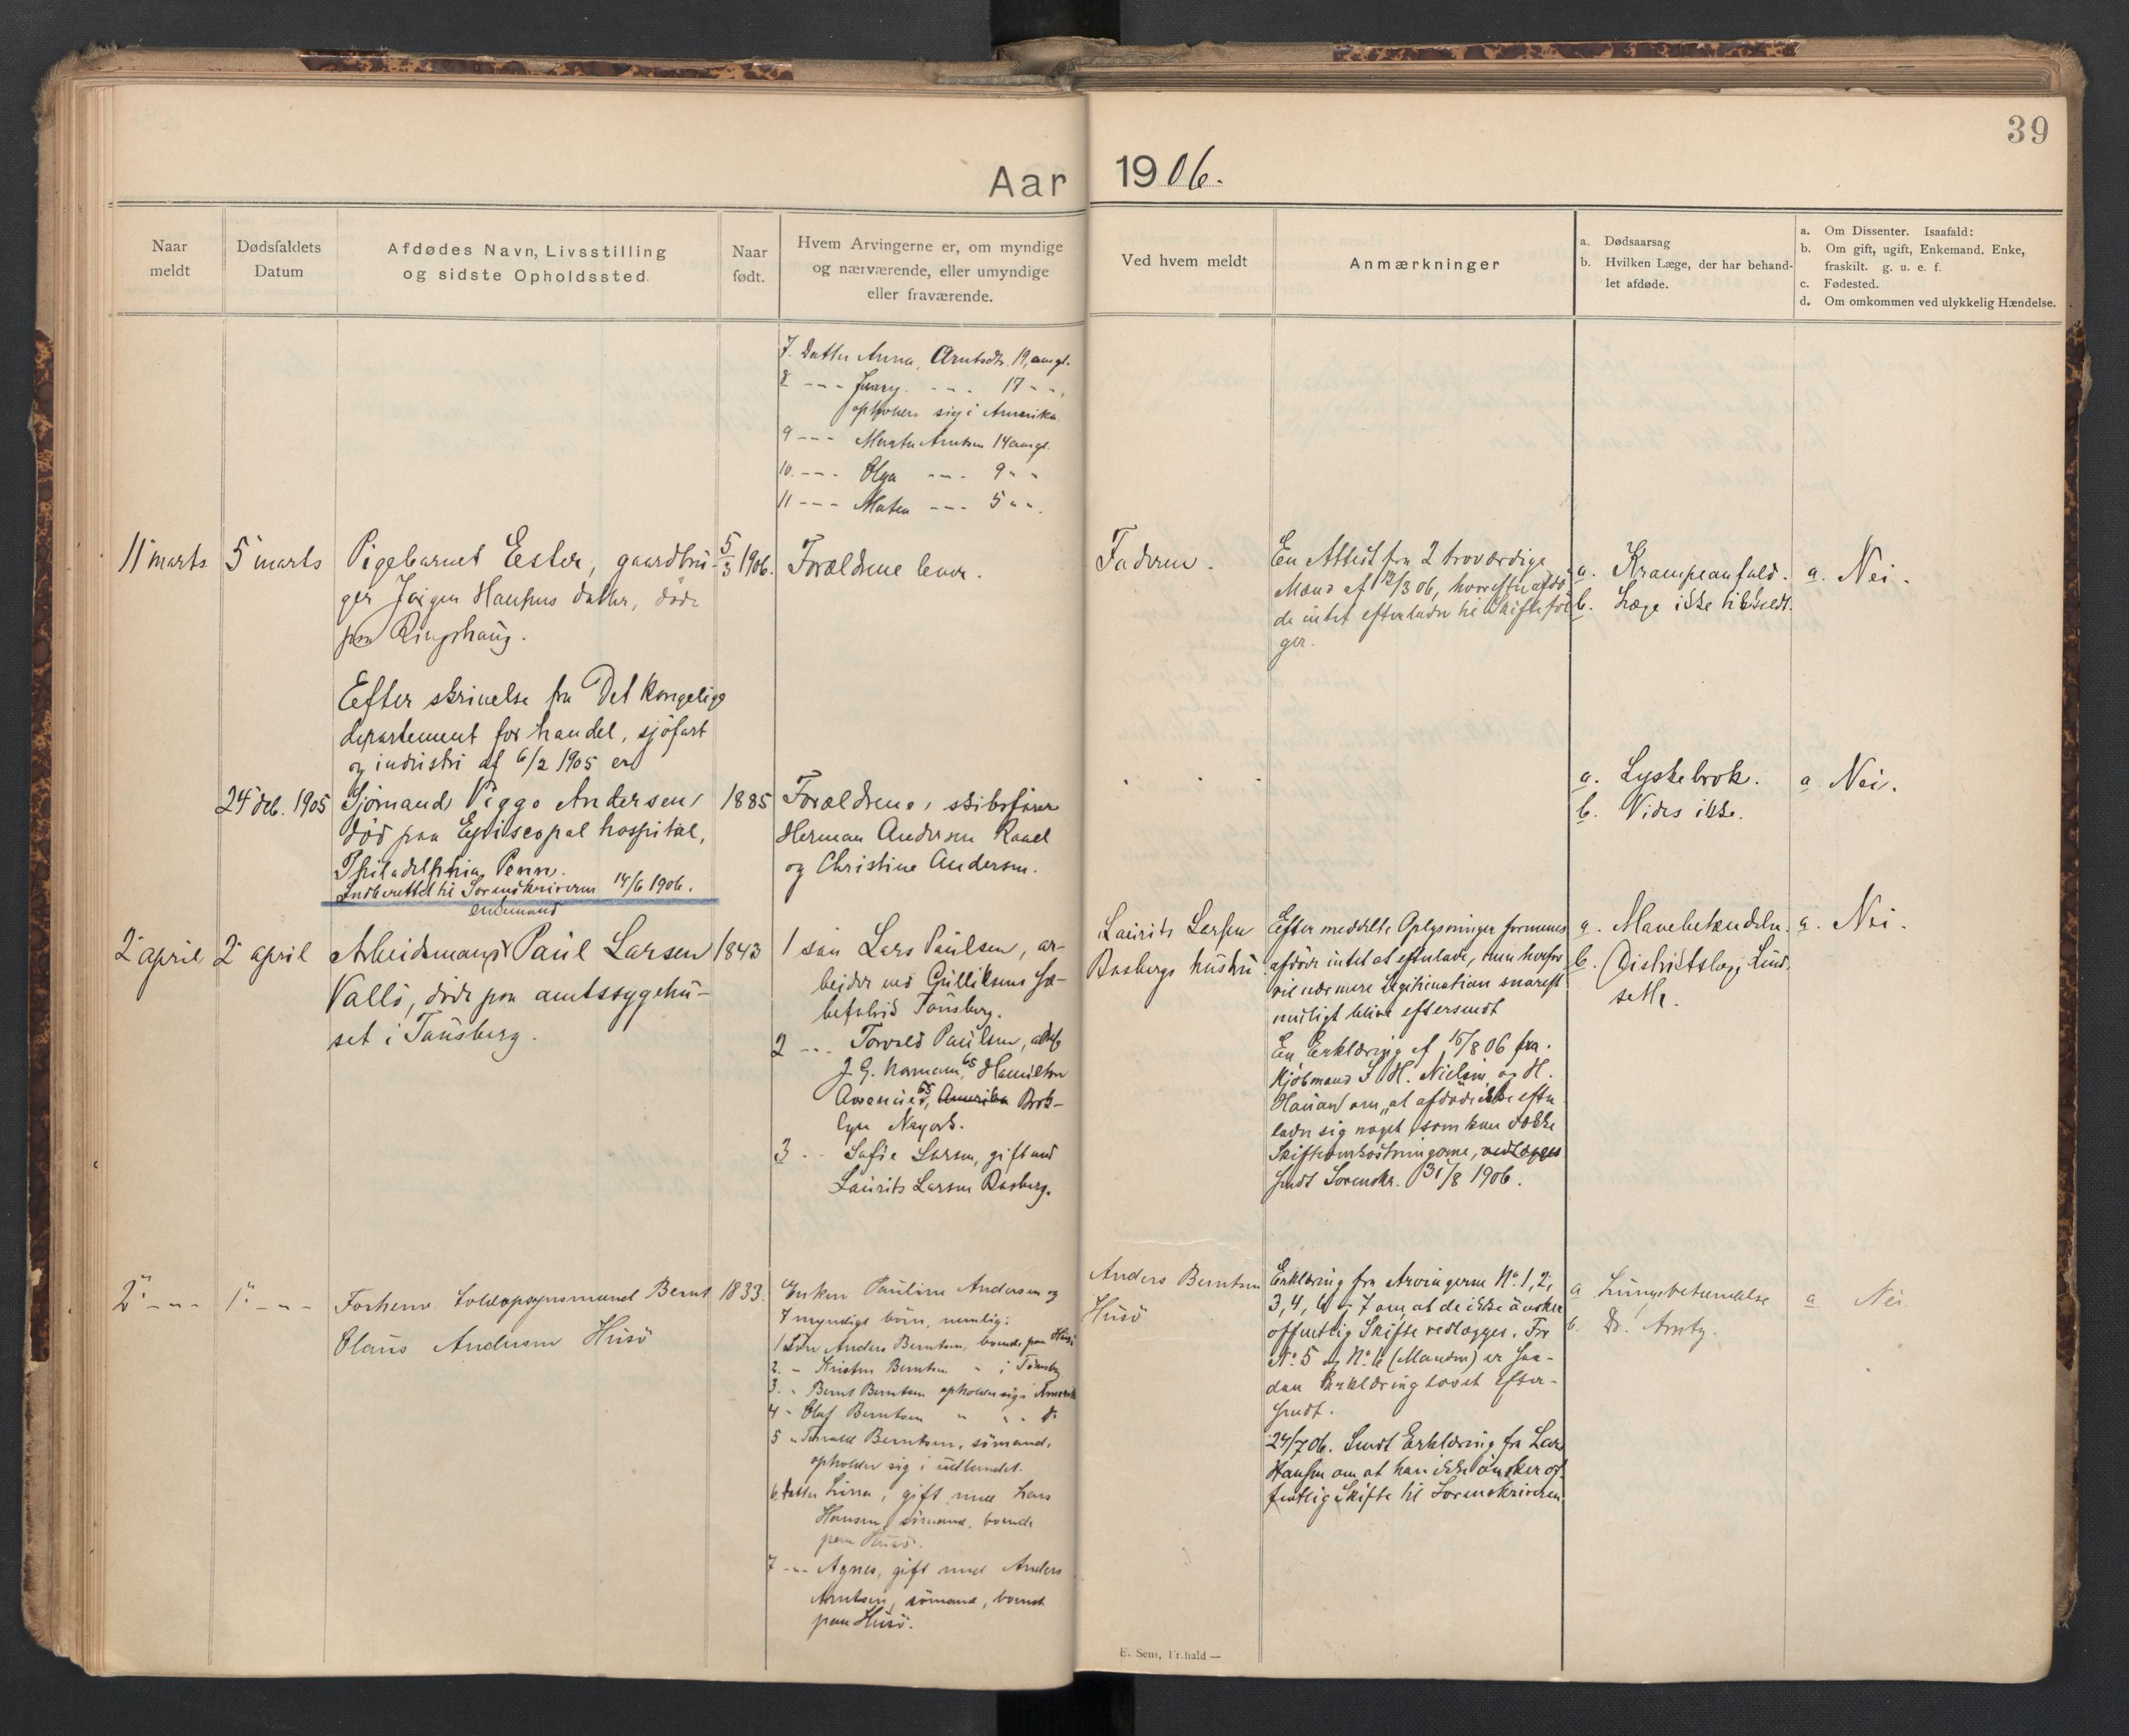 39
Aar 1906.
Naar
meldt
Dødsfaldets
Datum
Afdødes Navn, Livsstilling
og sidste Opholdssted.
Naar
født.
Hvem Arvingerne er, om myndige
og nærværende, eller umyndige
eller fraværende.
Ved hvem meldt
Anmærkninger
a. Dødsaarsag
b. Hvilken Læge, der har behand-
let afdøde.
a. Om Dissenter. Isaafald:
b. Om gift, ugift, Enkemand, Enke,
fraskilt. g. u. e. f.
c. Fødested.
d. Om omkommen ved ulykkelig Hændelse.
7. Datter Anna, Arntsdtr. 19, aargl.
8 --- --- 17 - -,
opholder sig i Amerika.
9 --- Arntsen 14 aargl.
10. --- Olga --- 9 - -
11 --- Matea --- 5 - -.
11 marts
5 marts
Pigebarnet Ester, gaardbru-
ger Jørgen Hansens datter, døde
paa Ringshaug.
5/3 1906.
Forældrene lever.
Faderen.
En Attest fra 2 troværdige
Mænd af 12/3 06, hvorefter afdø-
de intet efterlader til Skifte føl-
ger.
a. Krampeanfald.
b. Læge ikke tilkaldt.
a. Nei.
Efter skrivelse fra Det kongelige
departement for handel, sjöfart
og industri af 6/2 1905 er
24 deb. 1905
Sjömand Viggo Andersen,
död paa Episcopal hospital,
Philadelphia, Penn.
Indberettet til Sorenskriveren 14/6 1906.
1885
Forældrene, skibsförer
Herman Andersen Raael
og Christine Andersen.
a. Lyskebrok.
b. Vides ikke.
a Nei.
2 april
2 april
enkemand
Arbeidsmand Paul Larsen
Vallö, döde paa amtssygehu-
set i Tönsberg.
1843
1 sön Lars Paulsen, ar-
beider ved Gulliksens Sæ-
befabrik Tönsberg.
2 --- Torvald Paulsen, adr.
J. G. 65 Hamilton
65, Amerika Brok-
lyn Neyork.
3 -- Sofie Larsen, gift med
Laurits Larsen Basberg.
Laurits Larsen
Basbergs hustru
Efter meddelte Oplysninger formenes
afdöde intet at efterlade, men herfor
vil nærmere Legitimation snarest
muligt blive eftersendt
En Erklæring af 15/8 06 fra
Kjöbmand S. H. Nielsen og H.
Hauan om, at afdöde ikke efter
lader sig noget, som kan dække
Skifteomkostningerne, vedlægges
sendt Sorenskr. 31/8 1906.
a. Mavebetændelse.
b. Distriktslæge Lind-
seth.
a. Nei.
2. - - -
1. - - -
Forhenv. Toldopsynsmand Bernt
Olaus Andersen Husö
1833.
Enken Pauline Andersen og
7 myndige börn, nemlig:
1 Sön Anders Berntsen, boende paa Husö
2. - Kristen Berntsen " i Tönsberg
3. - Bernt Berntsen opholder sig i Amerika
4 - Olaf Berntsen " " do
5 " Torvald Berntsen, sömand,
opholder sig i udlandet.
6. datter Lina, gift med Lars
Hansen, sömand, boende
paa Husö.
7 --- Agnes, gift med Anders
Arntsen, sömand, boende
paa Husö.
Anders Berntsen
Husö
Erklæring fra Arvingerne No. 1, 2,
3, 4, 6 - 7 om, at de ikke önsker
offentlig Skifte vedlægges. For
No. 5 og No. 6 (Manden) er saa-
dan Erklæring lovet efter-
sendt.
24/7 06. Sendt Erklæring fra Lars
Hansen om at han ikke önsker of-
fentlig Skifte til Sorenskriveren.
a Lungebetændelse
b. Dr. Arntz.
a. Nei.
E. Sem, Fr.hald —